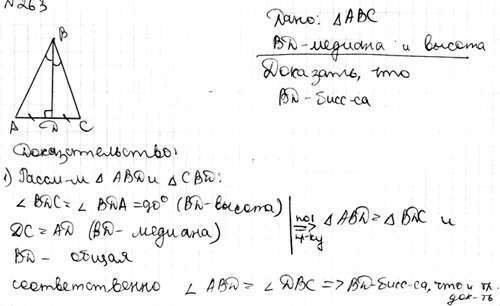 №263
Дано: △ABC
BD-медиана и высота
Доказать, что
BD-бисс-са
B
A D C
Доказательство:
1) Рассм-м △ ABD и △ CBD:
∠ BDC = ∠ BDA = 90° (BD-высота)
DC = AD (BD- медиана)
BD - общая
по 1 ⇒ △ABD = △BDC и
пр-ку
соответственно ∠ ABD = ∠DBC => BD-бисс-са, что и тр.
док-ть